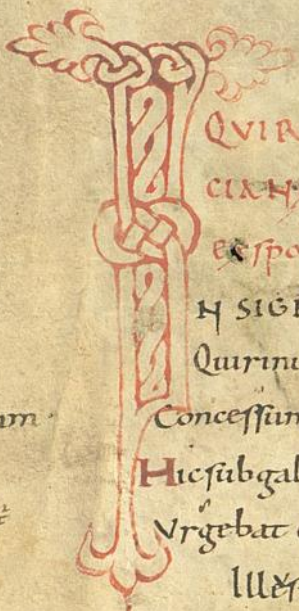 QVIR
CIAN
N SIGN
Quirinu
Concessum
Hic sub gal
Vrgebat
Ille